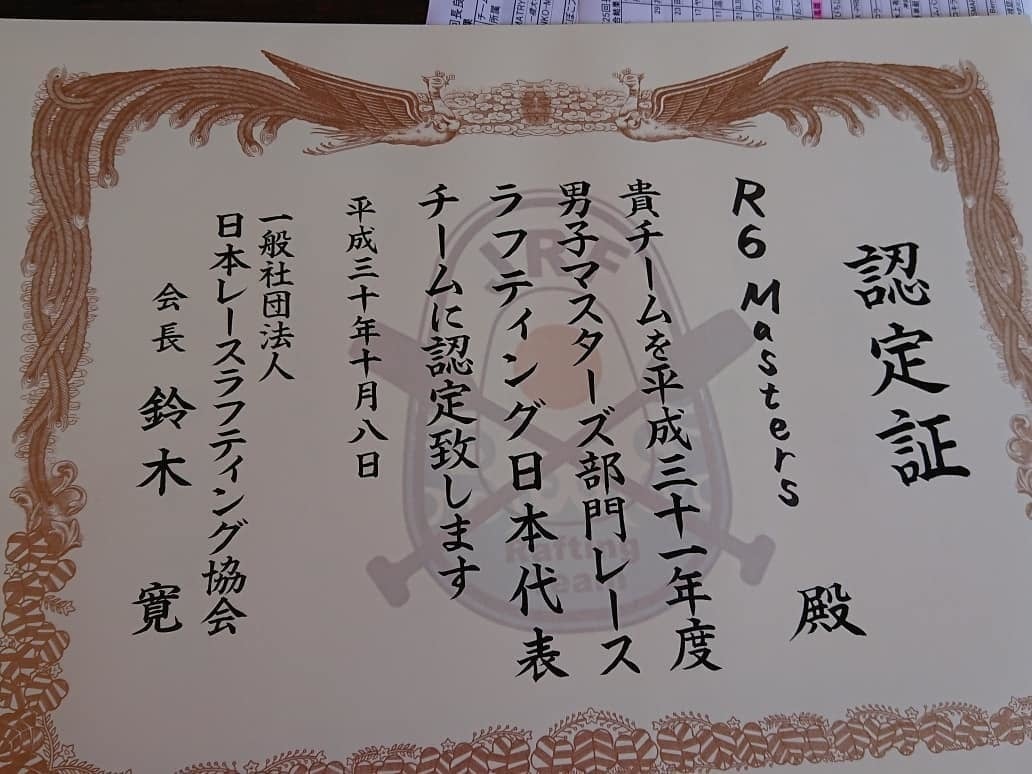 認定証
R6 Masters 殿
貴チームを平成三十一年度
男子マスターズ部門レース
ラフティング日本代表
チームに認定致します
平成三十年十月八日
一般社団法人
日本レースラフティング協会
会長 鈴木 寛
Rafting
Team